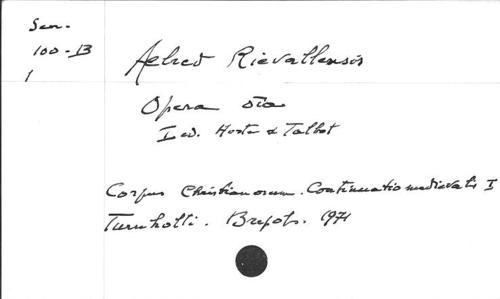 Sen.
100-B
1
Aelred Rievallensis
Opera oīa
I ed. Hoste & Talbot
Corpus Christianorum. Continuatio medievalis I
Turnholti. Brepols. 1971